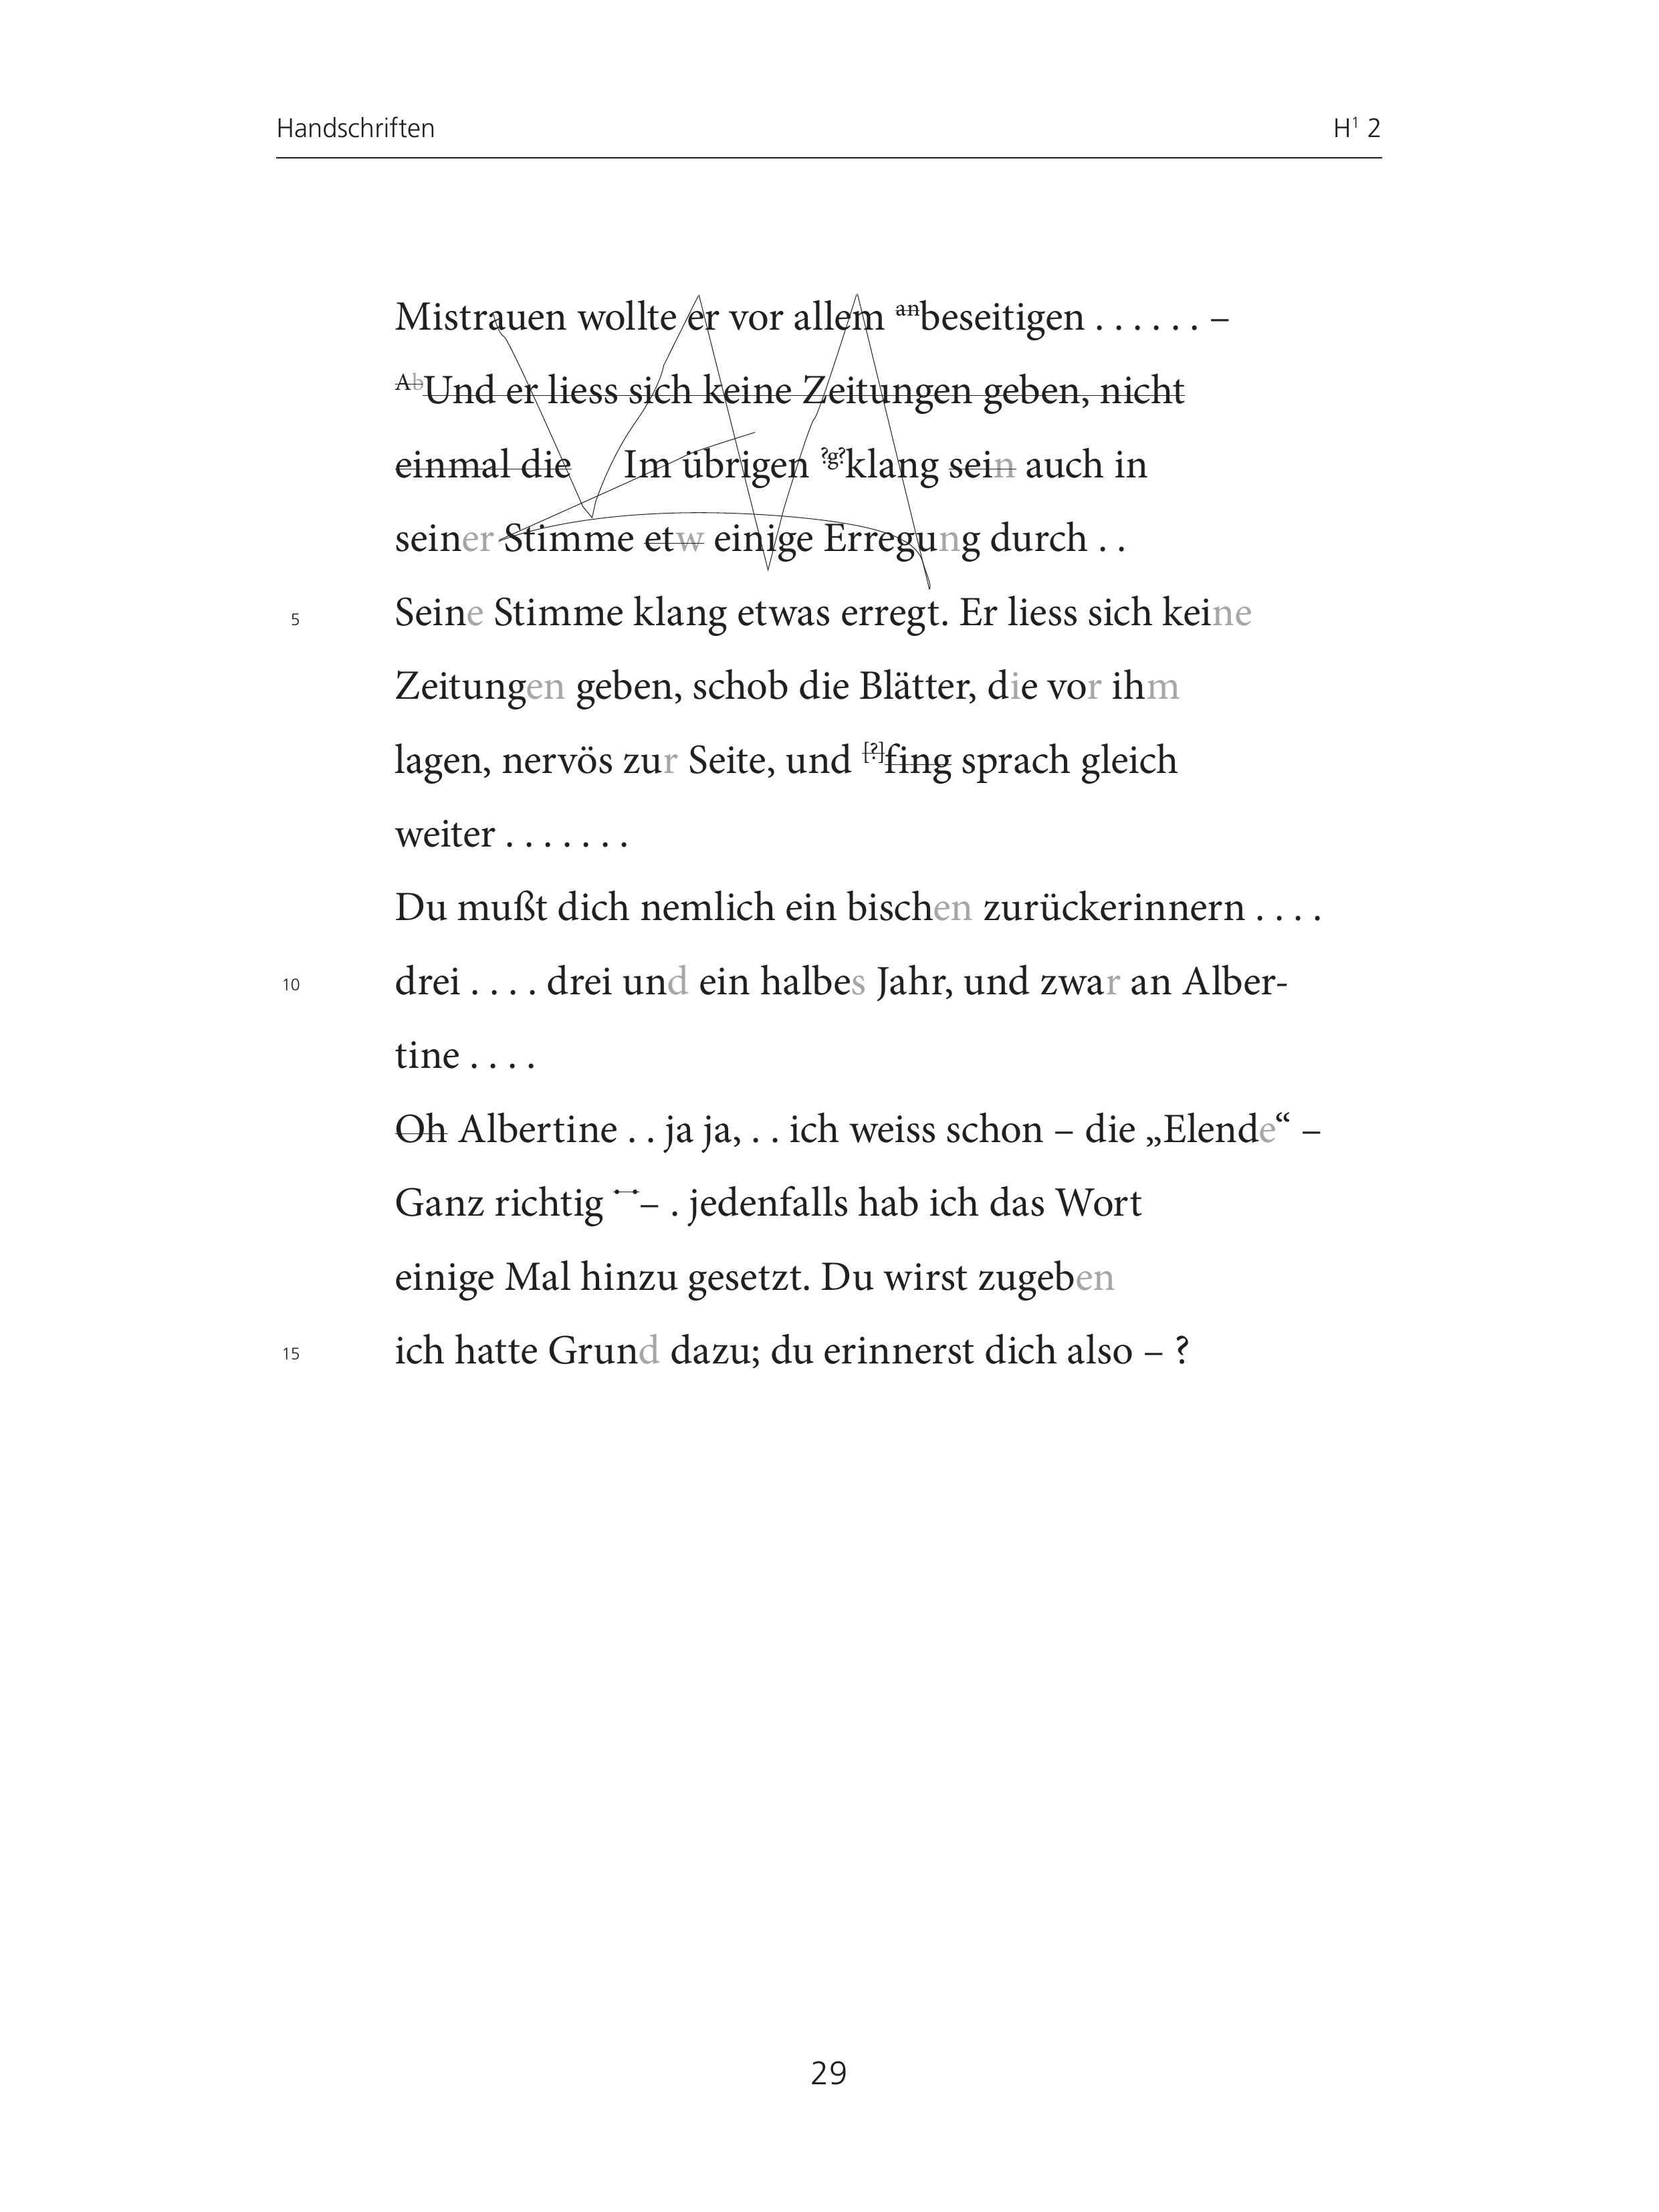 Handschriften H¹ 2
Mistrauen wollte er vor allem anbeseitigen . . . . . . –
AbUnd er liess sich keine Zeitungen geben, nicht
einmal die Im übrigen ?g?klang sein auch in
seiner Stimme etw einige Erregung durch . .
5 Seine Stimme klang etwas erregt. Er liess sich keine
Zeitungen geben, schob die Blätter, die vor ihm
lagen, nervös zur Seite, und [?]fing sprach gleich
weiter . . . . . . .
Du mußt dich nemlich ein bischen zurückerinnern . . . .
10 drei . . . . drei und ein halbes Jahr, und zwar an Alber-
tine . . . .
Oh Albertine . . ja ja, . . ich weiss schon – die „Elende“ –
Ganz richtig . . – . jedenfalls hab ich das Wort
einige Mal hinzu gesetzt. Du wirst zugeben
15 ich hatte Grund dazu; du erinnerst dich also – ?
29